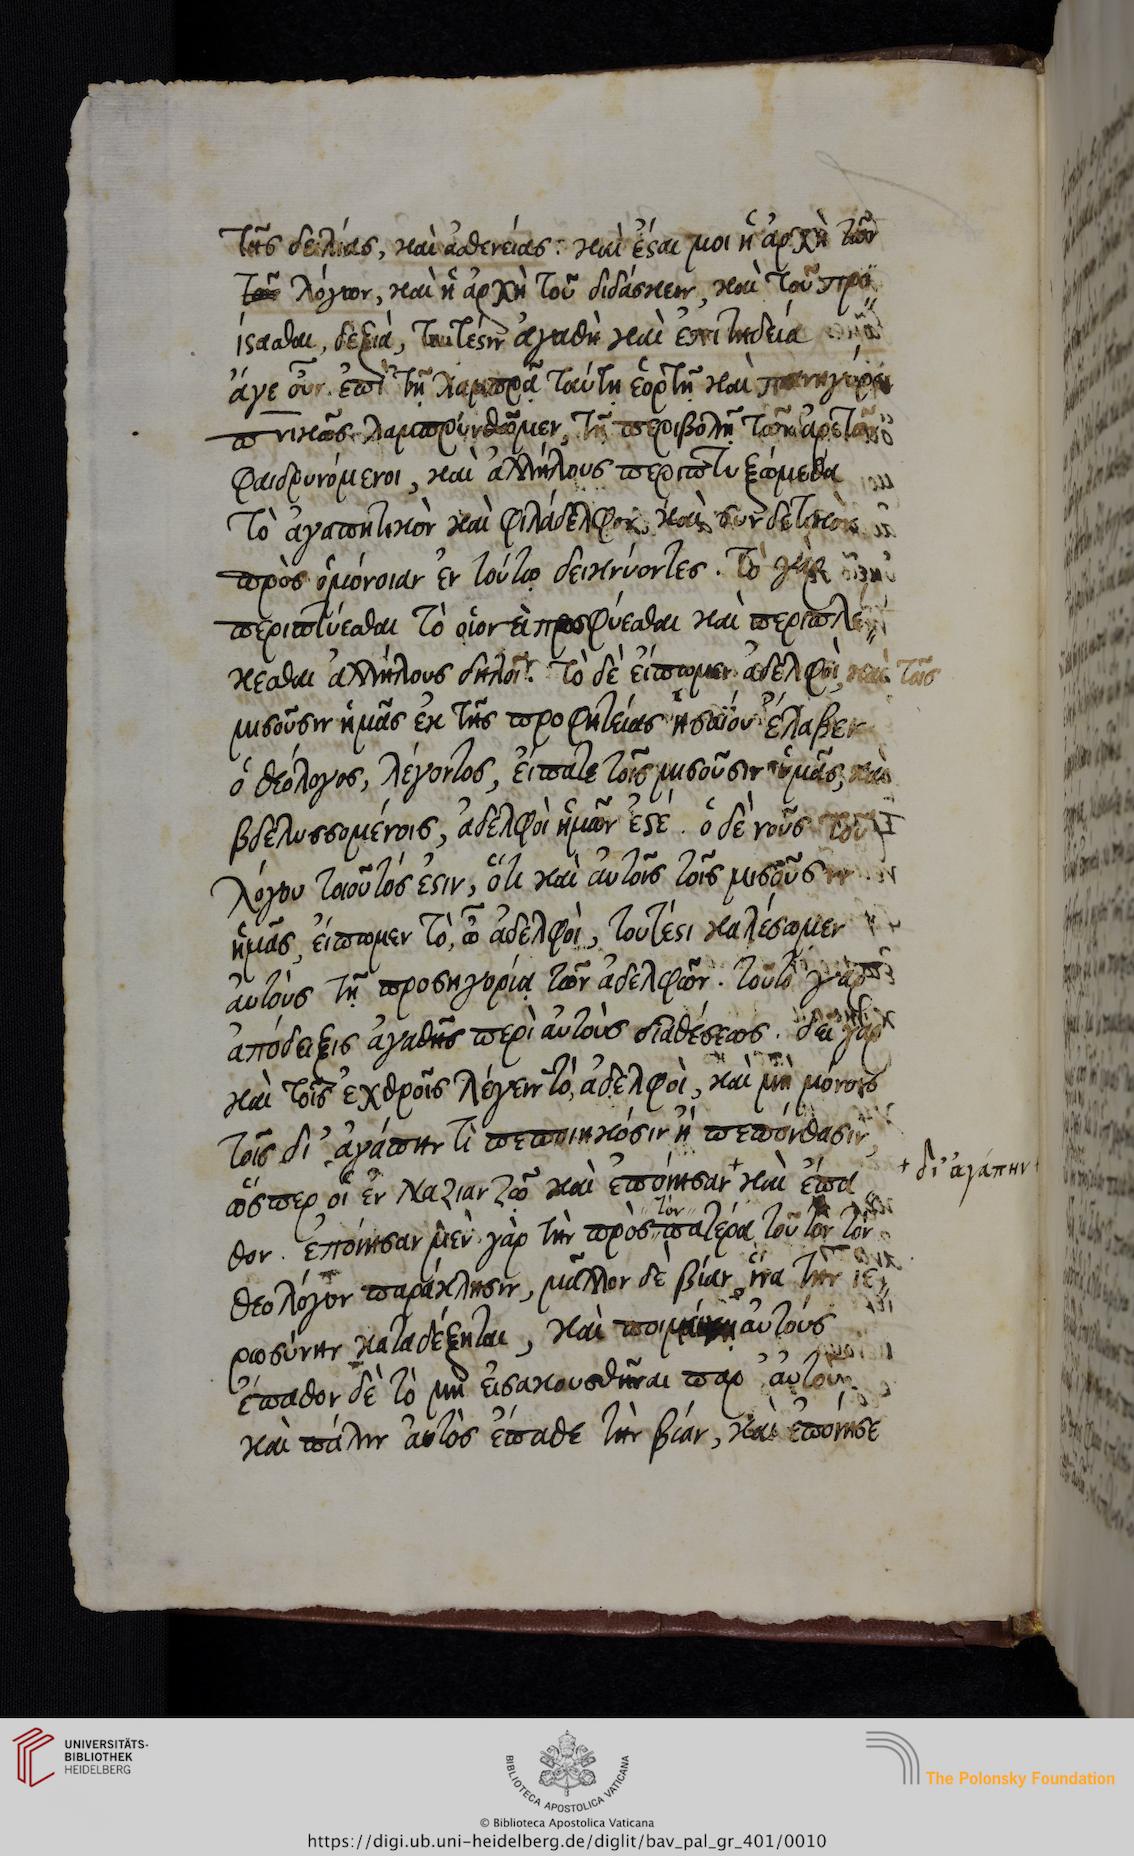 τῆς δειλίας, καὶ ἀσθενείας· καὶ ἔσται μοι ἡ ἀρχὴ τῶν
λόγων, καὶ ἡ ἀρχὴ τοῦ διδάσκειν, καὶ τοῦ προ
ίστασθαι, δεξιὰ, τουτέστιν ἀγαθὴ καὶ ἐπιτηδεία
ἄγε οὖν ἐπὶ τῇ λαμπρᾷ ταύτῃ ἑορτῇ καὶ πανηγύρει
λαμπρυνθῶμεν, τῇ περιβολῇ τῶν ἀρετῶν
φαιδρυνόμενοι, καὶ ἀλλήλους περιπτυξώμεθα
τὸ ἀγαπητικὸν καὶ φιλάδελφον, καὶ συνδετικὸν
πρὸς ὁμόνοιαν ἐν τούτῳ δεικνύοντες. τὸ γὰρ
περιπτύεσθαι τὸ οἷον εἰ προσφύεσθαι καὶ περιπλέ
κεσθαι ἀλλήλους δηλοῖ. τὸ δὲ εἴπωμεν ἀδελφοὶ, καὶ τοῖς
μισοῦσιν ἡμᾶς ἐκ τῆς προφητείας ἡσαΐου ἔλαβεν
ὁ θεόλογος, λέγοντος, εἴπατε τοῖς μισοῦσιν ὑμᾶς, καὶ
βδελυσσομένοις, ἀδελφοὶ ἡμῶν ἐστέ. ὁ δὲ νοῦς τοῦ
λόγου τοιοῦτός ἐστιν, ὅτι καὶ αὐτοῖς τοῖς μισοῦσιν
ἡμᾶς, εἴπωμεν τὸ, ὦ ἀδελφοὶ, τουτέστι καλέσωμεν
αὐτοὺς τῇ προσηγορίᾳ τῶν ἀδελφῶν. τοῦτο γὰρ
ἀπόδειξις ἀγαθῆς περὶ αὐτοὺς διαθέσεως. δεῖ γὰρ
καὶ τοῖς ἐχθροῖς λέγειν τὸ, ἀδελφοὶ, καὶ μὴ μόνοις
τοῖς δι' ἀγάπην τὶ πεποιηκόσιν ἢ πεπόνθασιν,
ὥσπερ οἱ ἐν Ναζιανζῷ καὶ ἐποίησαν + καὶ ἔπα
+ δι' ἀγάπην +
τὸν
θον. ἐποίησαν μὲν γὰρ τὴν πρὸς πατέρα τοῦτον τὸν
θεολόγον παράκλησιν, μᾶλλον δὲ βίαν, ἵνα τὴν ἱε
ρωσύνην καταδέξηται, καὶ αὐτούς
ἔπαθον δὲ τὸ μὴ εἰσακουσθῆναι παρ' αὐτοῦ
καὶ πάλιν αὐτὸς ἔπαθε τὴν βίαν, καὶ ἐποίησε
UNIVERSITÄTS-
BIBLIOTHEK
HEIDELBERG
BIBLIOTECA APOSTOLICA VATICANA
The Polonsky Foundation
© Biblioteca Apostolica Vaticana
https://digi.ub.uni-heidelberg.de/diglit/bav_pal_gr_401/0010